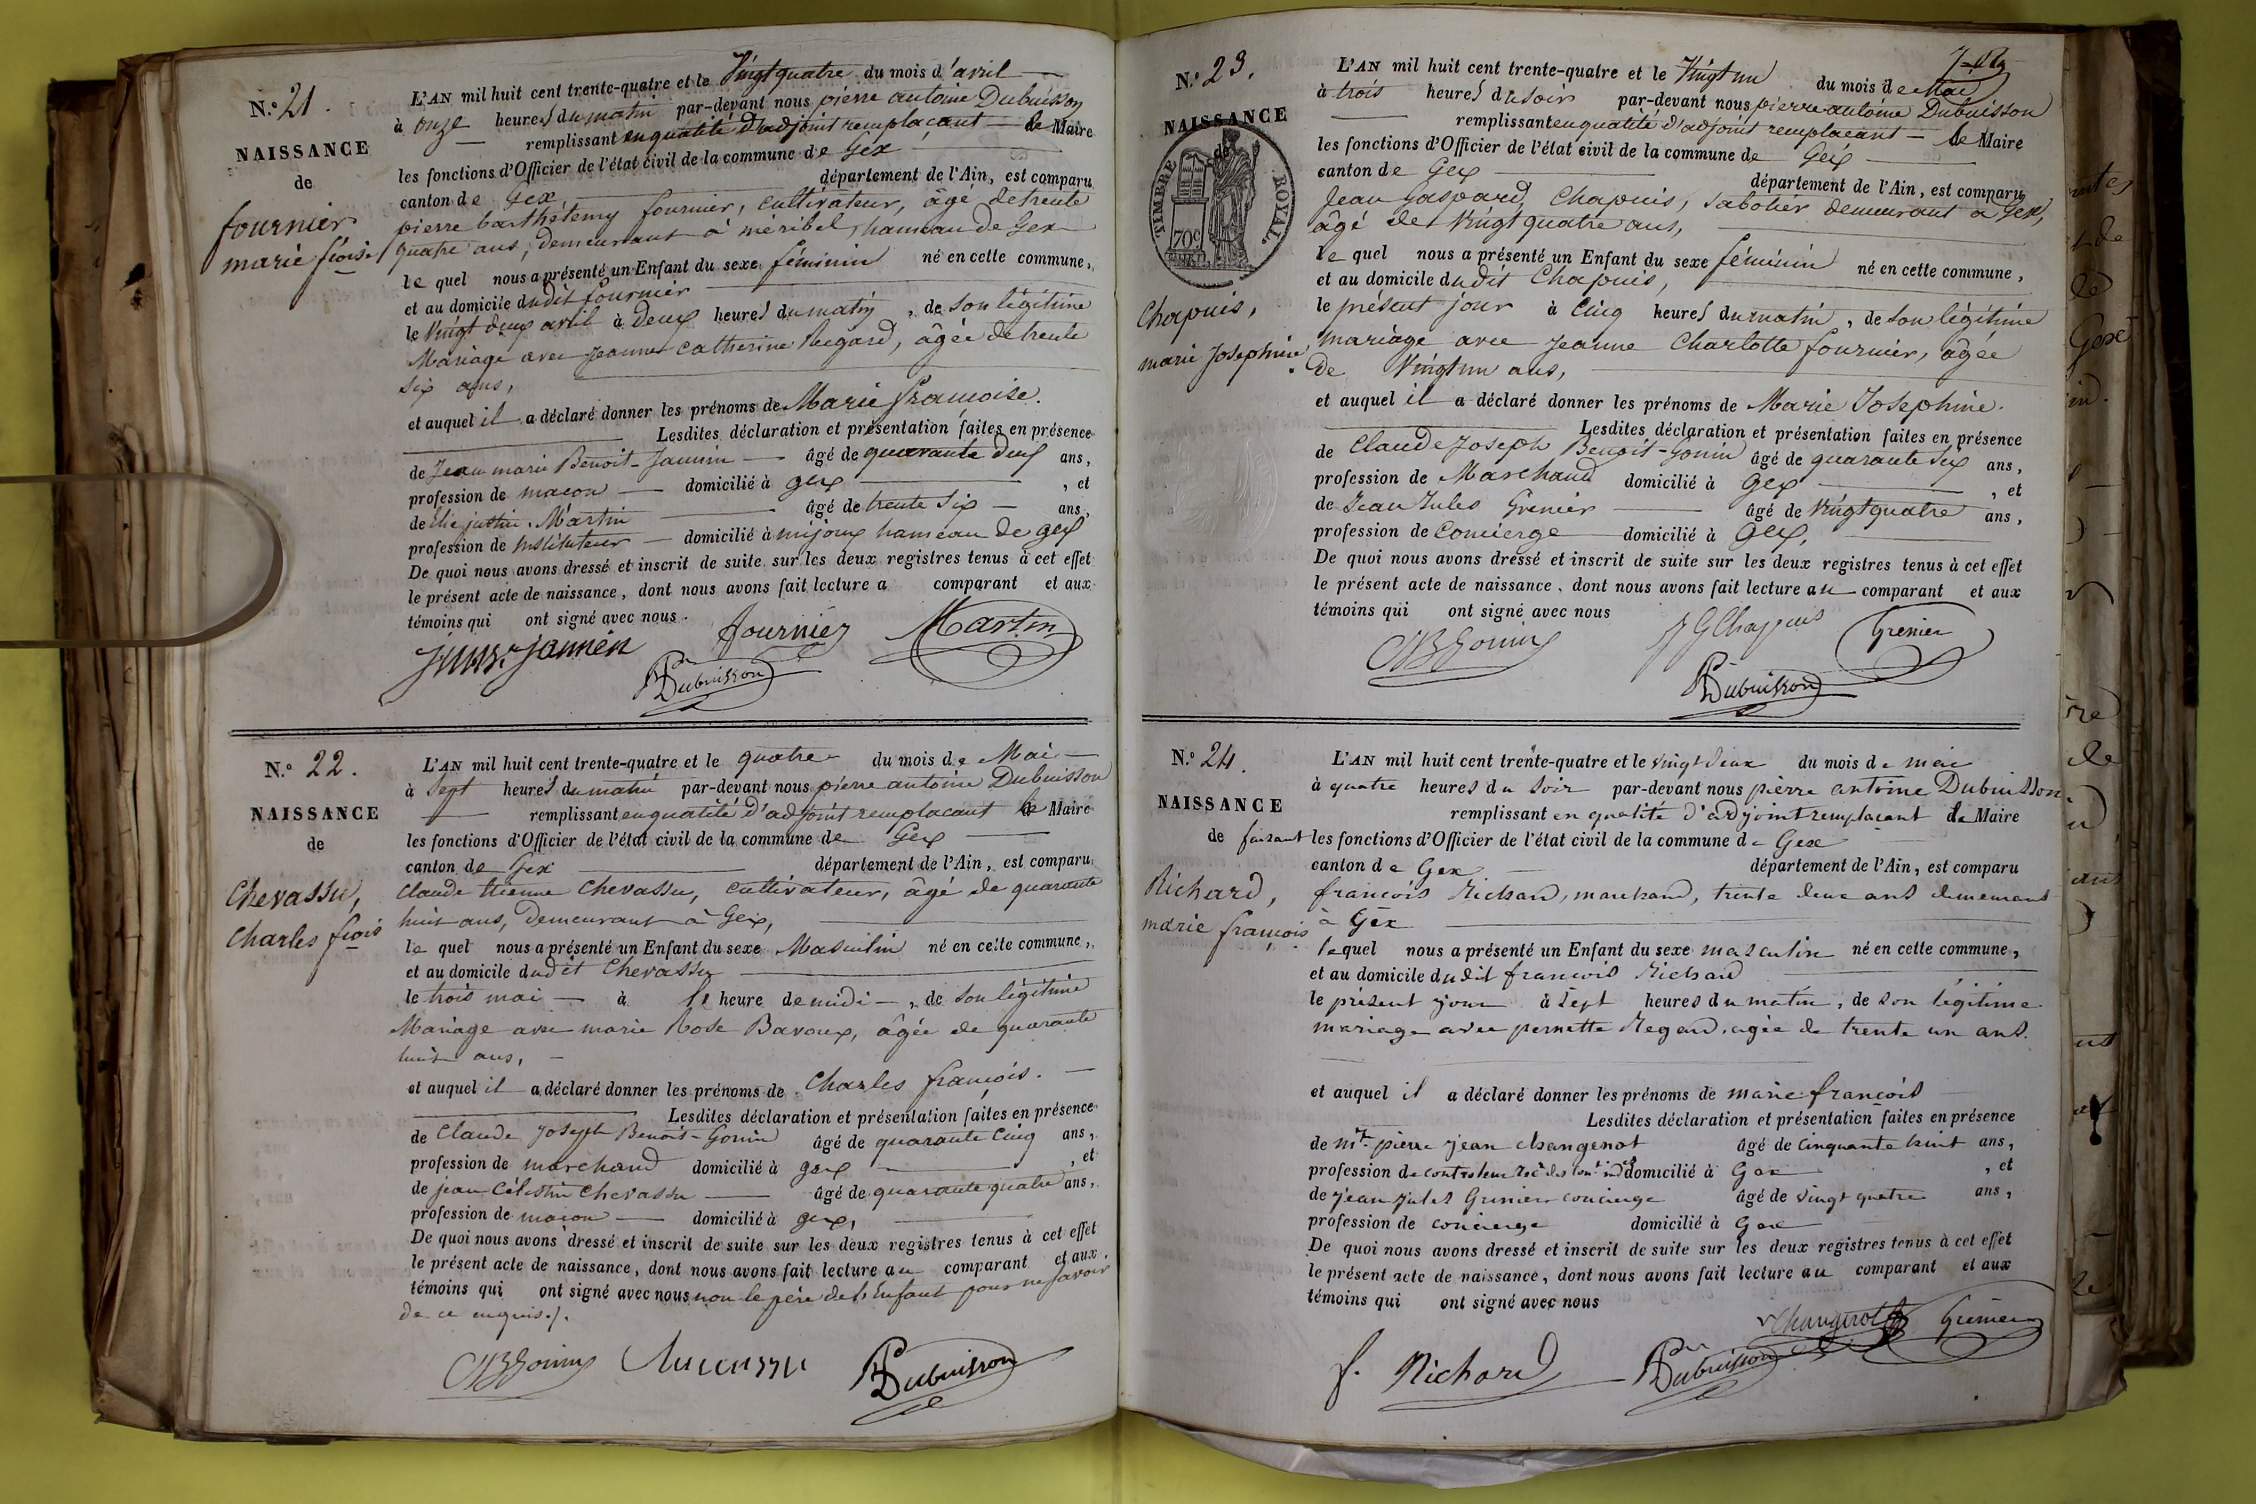 N.° 21.
NAISSANCE
de
fournier
marie fçoise
L'AN mil huit cent trente-quatre et le Vingt quatre du mois d'avril
à onze heures du matin par-devant nous pierre antoine Dubuisson
remplissant en qualité d'adjoint remplaçant le Maire
les fonctions d'Officier de l'état civil de la commune de Gex
canton de Gex département de l'Ain, est comparu
pierre barthélemy fournier, cultivateur, âgé de trente
quatre ans, demeurant à méribel, hameau de Gex
le quel nous a présenté un Enfant du sexe féminin né en cette commune,
et au domicile dudit fournier
le Vingt deux avril à Deux heures du matin, de son légitime
Mariage avec jeanne Catherine Regard, âgée de trente
six ans,
et auquel il a déclaré donner les prénoms de Marie françoise.
Lesdites déclaration et présentation faites en présence
de Jean marie Benoit-Jannin âgé de quarante deux ans,
profession de maçon domicilié à gex, et
de Elie justin Martin âgé de trente six ans,
profession de Instituteur domicilié à mijoux hameau de gex
De quoi nous avons dressé et inscrit de suite sur les deux registres tenus à cet effet
le présent acte de naissance, dont nous avons fait lecture a comparant et aux
témoins qui ont signé avec nous.
Jannin fournier Martin
Dubuisson
N.° 22.
NAISSANCE
de
Chevassu,
Charles fçois
L'AN mil huit cent trente-quatre et le quatre du mois de Mai
à sept heures du matin par-devant nous pierre antoine Dubuisson
remplissant en qualité d'adjoint remplacant le Maire
les fonctions d'Officier de l'état civil de la commune de Gex
canton de Gex département de l'Ain, est comparu
Claude Etienne Chevassu, cultivateur, âgé de quarante
huit ans, Demeurant à Gex,
le quel nous a présenté un Enfant du sexe Masculin né en cette commune,
et au domicile dudit Chevassu
le trois mai à l' heure de midi, de son légitime
Mariage avec marie Rose Bavoux, âgée de quarante
huit ans,
et auquel il a déclaré donner les prénoms de Charles françois.
Lesdites déclaration et présentation faites en présence
de Claude Joseph Benoit-Gonin âgé de quarante Cinq ans,
profession de marchand domicilié à gex, et
de jean Célestin Chevassu âgé de quarante quatre ans,
profession de maçon domicilié à gex,
De quoi nous avons dressé et inscrit de suite sur les deux registres tenus à cet effet
le présent acte de naissance, dont nous avons fait lecture au comparant et aux
témoins qui ont signé avec nous non le père de l'Enfant pour ne savoir
de ce enquis./.
CJBGonin Chevassu Dubuisson
N.° 23.
NAISSANCE
de
TIMBRE ROYAL.
70c
Chapuis,
marie Josephine
L'AN mil huit cent trente-quatre et le Vingt un du mois de Mai
à trois heures du soir par-devant nous pierre antoine Dubuisson
remplissant en qualité d'adjoint remplacant le Maire
les fonctions d'Officier de l'état civil de la commune de Gex
canton de Gex département de l'Ain, est comparu
Jean Gaspard Chapuis, Sabotier demeurant à Gex,
âgé de Vingt quatre ans,
le quel nous a présenté un Enfant du sexe féminin né en cette commune,
et au domicile dudit Chapuis,
le présent jour à Cinq heures du matin, de son légitime
mariage avec Jeanne Charlotte fournier, âgée
de Vingt un ans,
et auquel il a déclaré donner les prénoms de Marie Josephine.
Lesdites déclaration et présentation faites en présence
de Claude Joseph Benoit-Gonin âgé de quarante six ans,
profession de Marchand domicilié à Gex, et
de Jean Jules Grenier âgé de Vingt quatre ans,
profession de Concierge domicilié à Gex,
De quoi nous avons dressé et inscrit de suite sur les deux registres tenus à cet effet
le présent acte de naissance, dont nous avons fait lecture au comparant et aux
témoins qui ont signé avec nous
CJBGonin JGChapuis Grenier
Dubuisson
N.° 24.
NAISSANCE
de
Richard,
marie françois
L'AN mil huit cent trente-quatre et le vingt deux du mois de mai
à quatre heures du soir par-devant nous pierre antoine Dubuisson
remplissant en qualité d'adjoint remplacant le Maire
faisant les fonctions d'Officier de l'état civil de la commune de Gex
canton de Gex département de l'Ain, est comparu
francois Richard, marchand, trente deux ans demeurant
à Gex
lequel nous a présenté un Enfant du sexe masculin né en cette commune,
et au domicile dudit francois Richard
le présent jour à sept heures du matin, de son légitime
mariage avec pernette Regard, agée de trente un ans.
et auquel il a déclaré donner les prénoms de marie françois
Lesdites déclaration et présentation faites en présence
de mr. pierre jean changenot âgé de cinquante huit ans,
profession de controleur domicilié à Gex, et
de jean jules Grenier concierge âgé de vingt quatre ans,
profession de concierge domicilié à Gex
De quoi nous avons dressé et inscrit de suite sur les deux registres tenus à cet effet
le présent acte de naissance, dont nous avons fait lecture au comparant et aux
témoins qui ont signé avec nous
Changenot Grenier
f. Richard Dubuisson